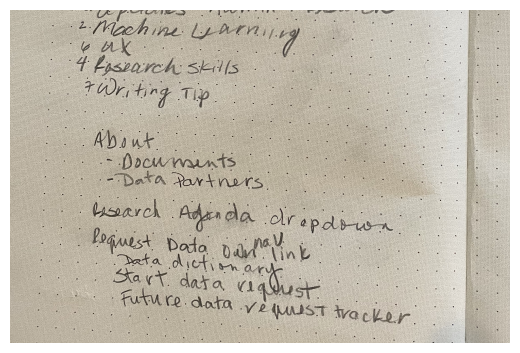 2. Machine Learning
6 UX
4 Research Skills
7 Writing Tip
About
- Documents
- Data Partners
Research Agenda dropdown
Request Data own nav link
Data dictionary
Start data request
Future data request tracker